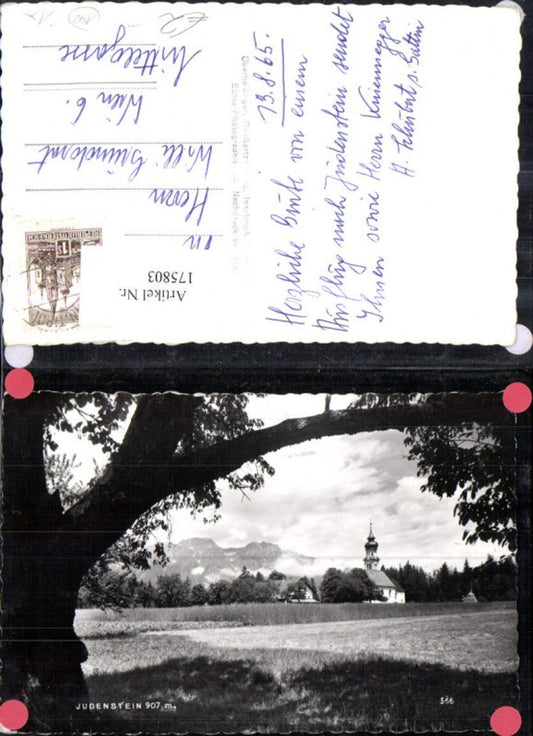 13.8.65.
Herzliche Grüße von einem
Ausflug nach Judenstein sendet
Ihnen sowie Herrn
H. Schubert
an
Herrn
Willi
Wien 6.
Mittelgasse
Artikel Nr.
175803
REPUBLIK ÖSTERREICH
Echte Photographie — Nachdruck
JUDENSTEIN 907 m.
566